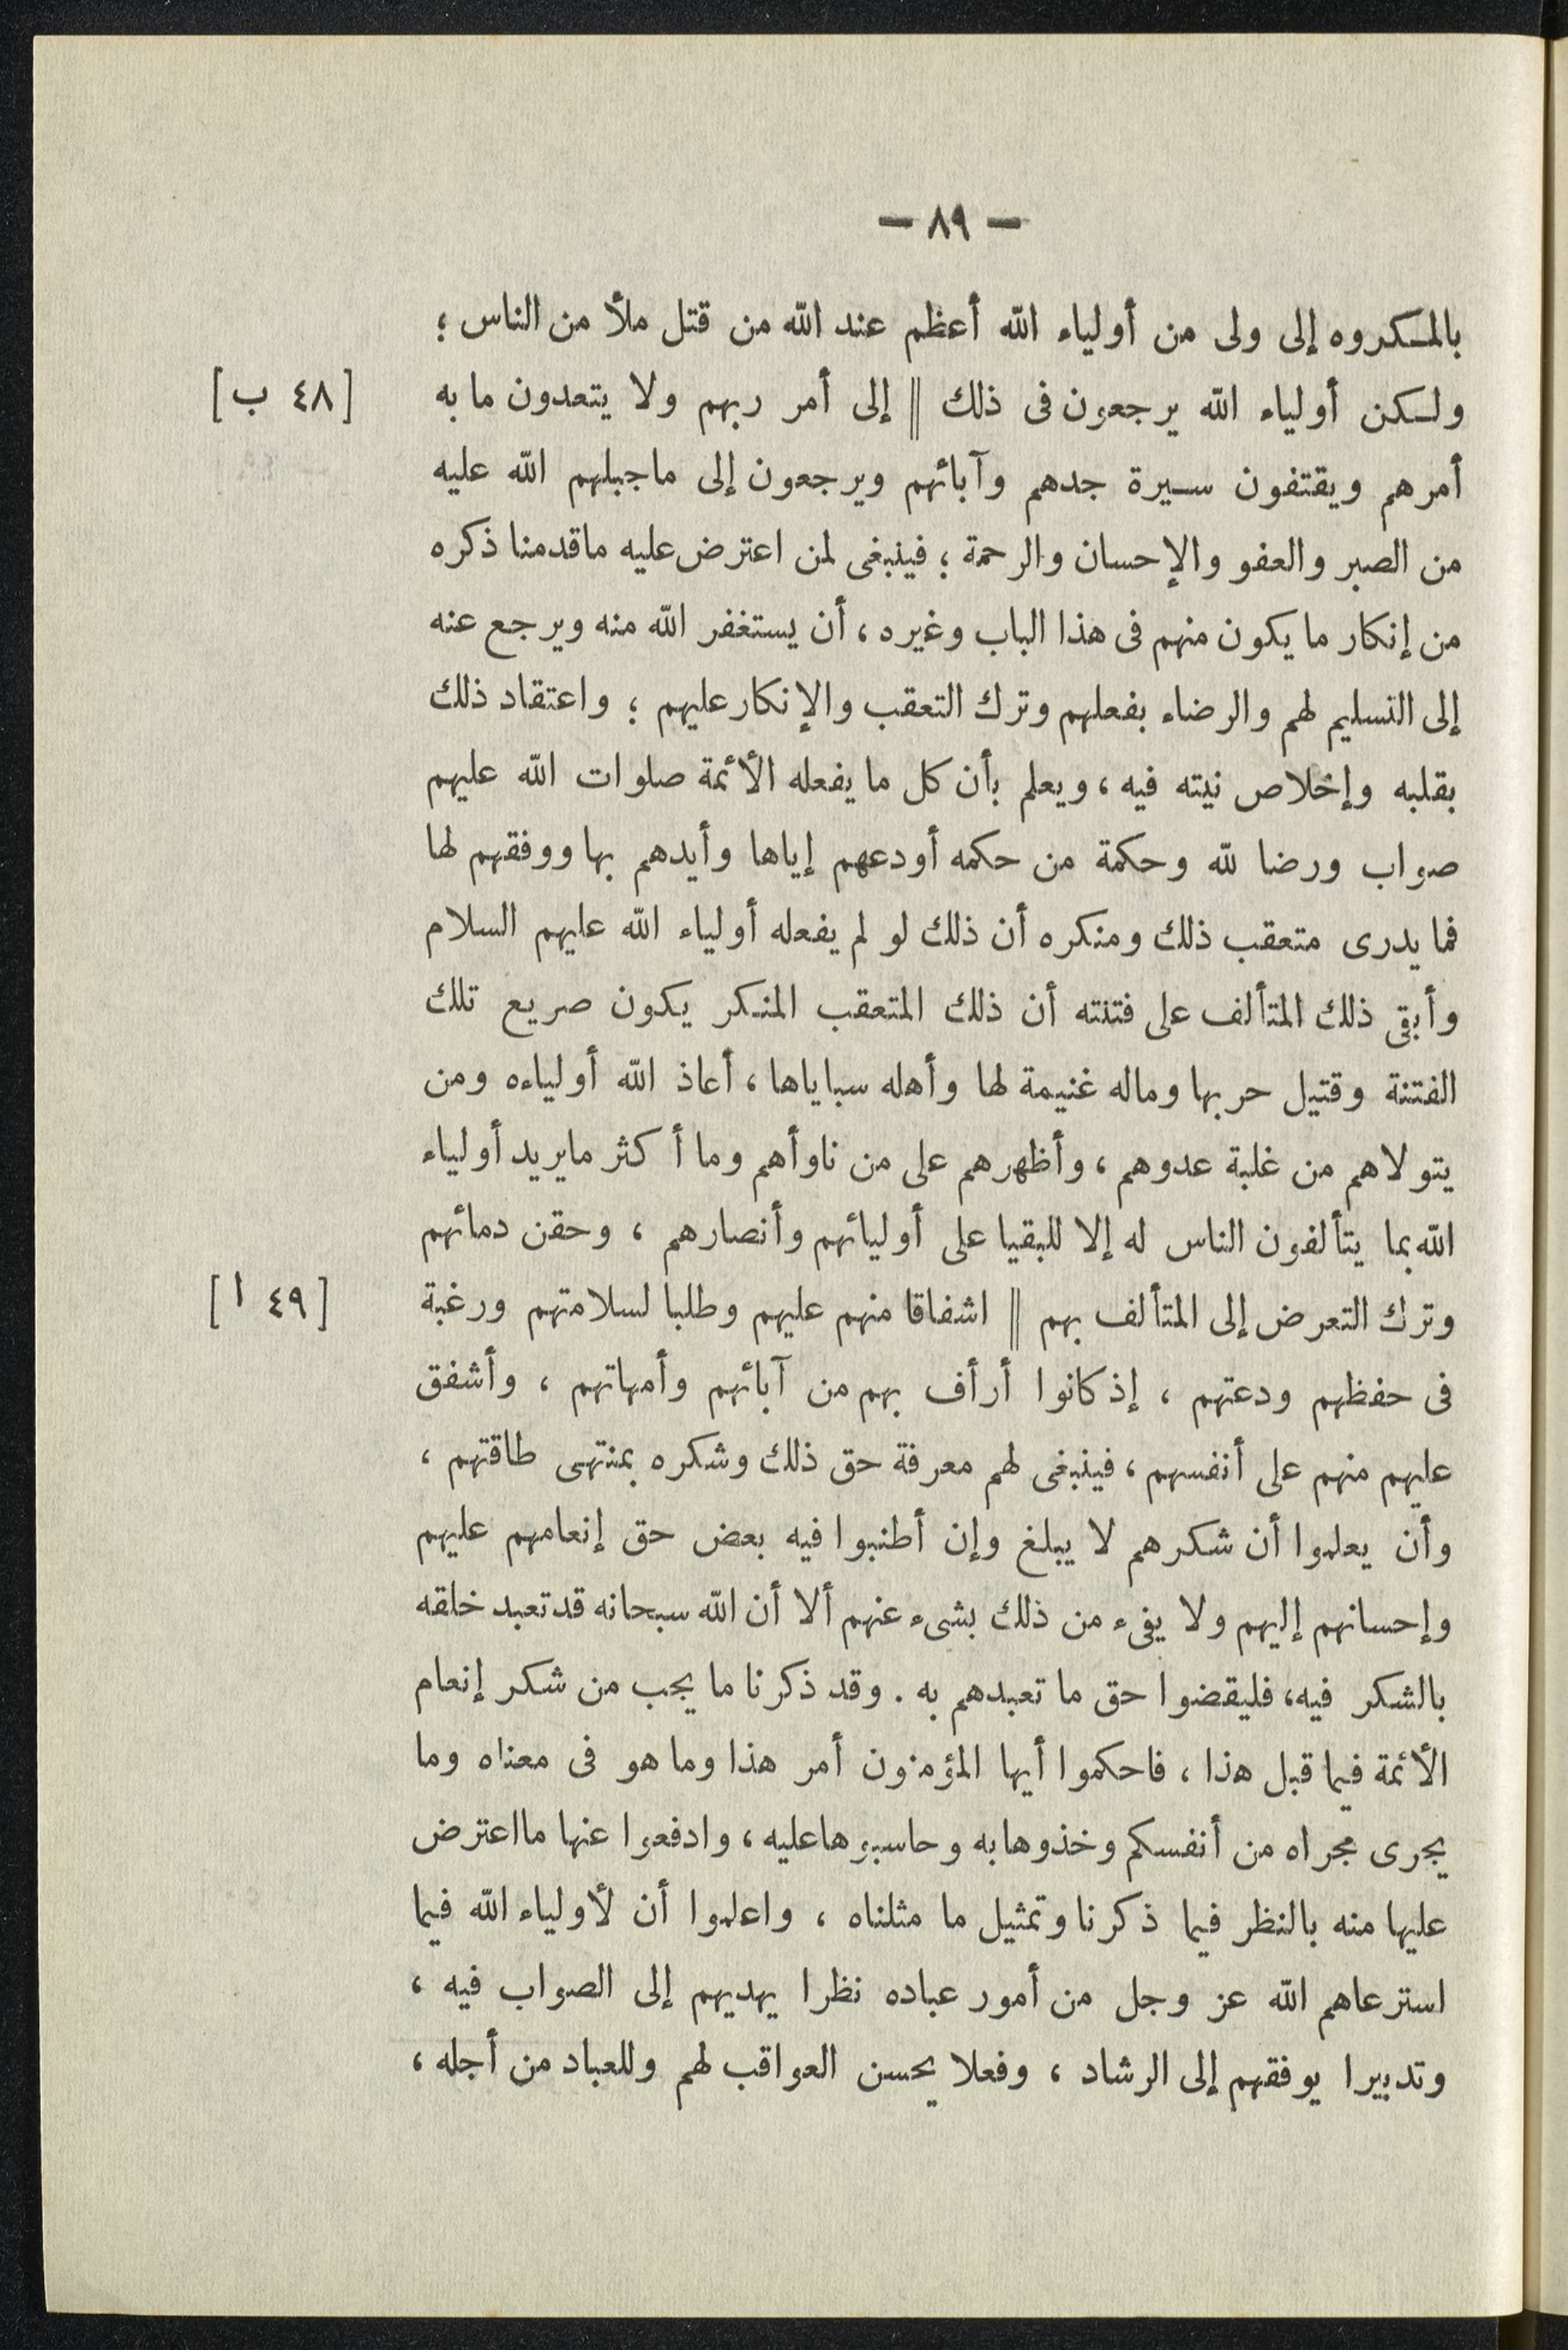 — ٨٩ —
بالمكروه إلى ولى من أولياء الله أعظم عند الله من قتل ملأ من الناس ؛
ولكن أولياء الله يرجعون فى ذلك || إلى أمر ربهم ولا يتعدون ما به [ ٤٨ ب ]
أمرهم ويقتفون سيرة جدهم وآبائهم ويرجعون إلى ماجبلهم الله عليه
من الصبر والعفو والإحسان والرحمة ؛ فينبغى لمن اعترض عليه ماقدمنا ذكره
من إنكار ما يكون منهم فى هذا الباب وغيره ، أن يستغفر الله منه ويرجع عنه
إلى التسليم لهم والرضاء بفعلهم وترك التعقب والإنكار عليهم ؛ واعتقاد ذلك
بقلبه وإخلاص نيته فيه ، ويعلم بأن كل ما يفعله الأئمة صلوات الله عليهم
صواب ورضا لله وحكمة من حكمه أودعهم إياها وأيدهم بها ووفقهم لها
فما يدرى متعقب ذلك ومنكره أن ذلك لو لم يفعله أولياء الله عليهم السلام
وأبقى ذلك المتألف على فتنته أن ذلك المتعقب المنكر يكون صريع تلك
الفتنة وقتيل حربها وماله غنيمة لها وأهله سباياها ، أعاذ الله أولياءه ومن
يتولاهم من غلبة عدوهم ، وأظهرهم على من ناوأهم وما أكثر مايريد أولياء
الله بما يتألفون الناس له إلا للبقيا على أوليائهم وأنصارهم ، وحقن دمائهم
وترك التعرض إلى المتألف بهم || اشفاقا منهم عليهم وطلبا لسلامتهم ورغبة [ ٤٩ ا ]
فى حفظهم ودعتهم ، إذ كانوا أرأف بهم من آبائهم وأمهاتهم ، وأشفق
عليهم منهم على أنفسهم ، فينبغى لهم معرفة حق ذلك وشكره بمنتهى طاقتهم ،
وأن يعلموا أن شكرهم لا يبلغ وإن أطنبوا فيه بعض حق إنعامهم عليهم
وإحسانهم إليهم ولا يفىء من ذلك بشىء عنهم ألا أن الله سبحانه قد تعبد خلقه
بالشكر فيه، فليقضوا حق ما تعبدهم به . وقد ذكرنا ما يجب من شكر إنعام
الأئمة فيما قبل هذا ، فاحكموا أيها المؤمنون أمر هذا وما هو فى معناه وما
يجرى مجراه من أنفسكم وخذوها به وحاسبوها عليه ، وادفعوا عنها مااعترض
عليها منه بالنظر فيما ذكرنا وتمثيل ما مثلناه ، واعلموا أن لأولياء الله فيما
استرعاهم الله عز وجل من أمور عباده نظرا يهديهم إلى الصواب فيه ،
وتدبيرا يوفقهم إلى الرشاد ، وفعلا يحسن العواقب لهم وللعباد من أجله ،